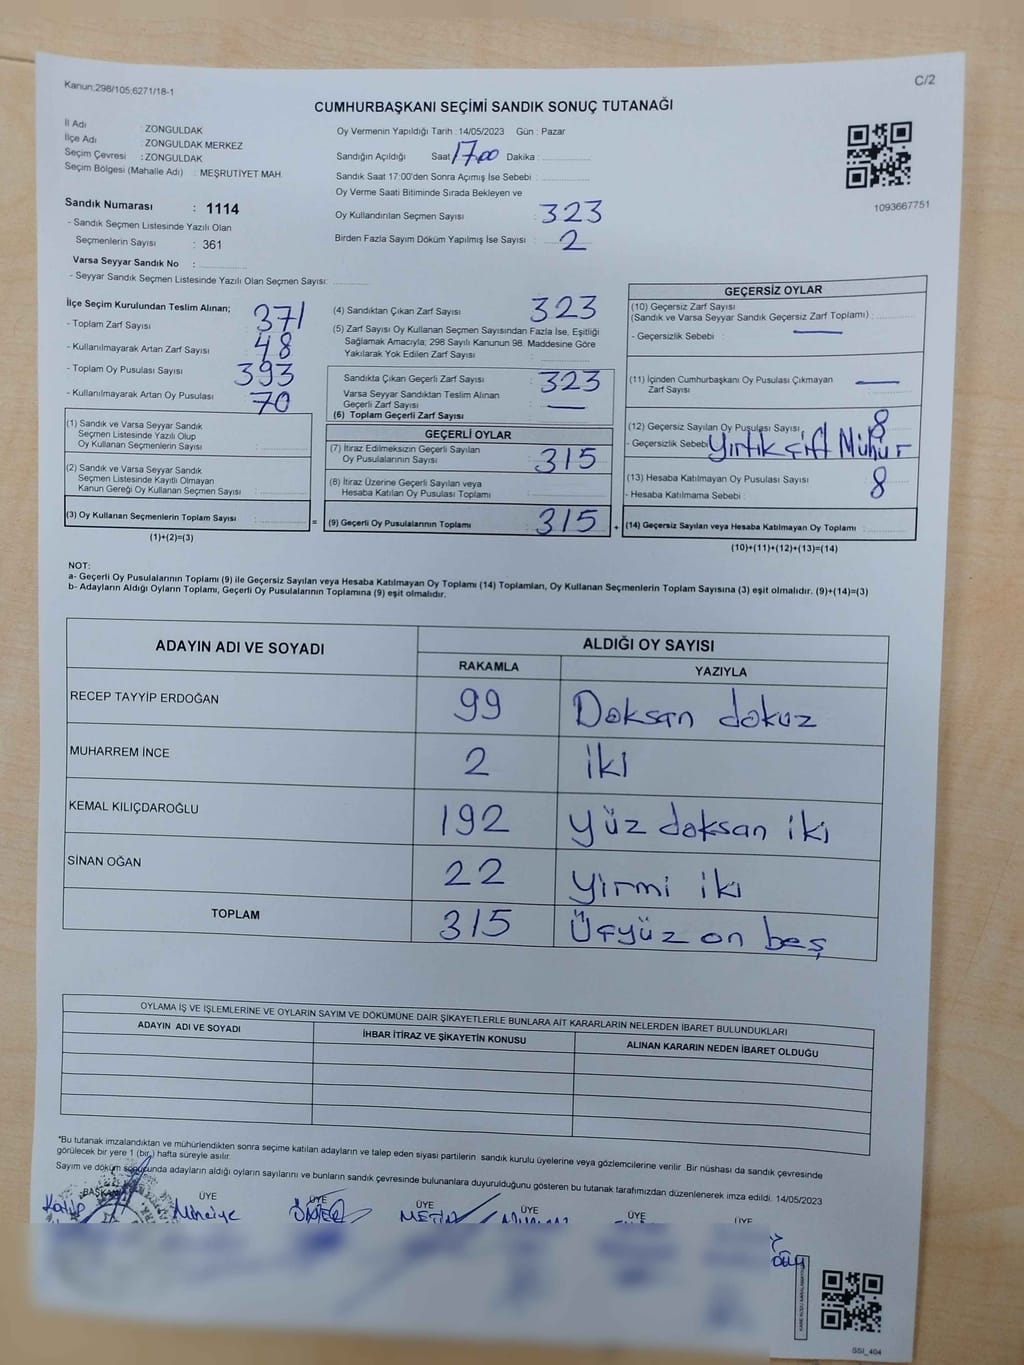 Kanun:298/105;6271/18-1
C/2
CUMHURBAŞKANI SEÇİMİ SANDIK SONUÇ TUTANAĞI
İl Adı : ZONGULDAK
İlçe Adı : ZONGULDAK MERKEZ
Seçim Çevresi : ZONGULDAK
Seçim Bölgesi (Mahalle Adı) : MEŞRUTİYET MAH.
Sandık Numarası : 1114
- Sandık Seçmen Listesinde Yazılı Olan
Seçmenlerin Sayısı : 361
Varsa Seyyar Sandık No :
- Seyyar Sandık Seçmen Listesinde Yazılı Olan Seçmen Sayısı:
Oy Vermenin Yapıldığı Tarih : 14/05/2023 Gün : Pazar
Sandığın Açıldığı Saat 17.00 Dakika :
Sandık Saat 17:00'den Sonra Açımış İse Sebebi :
Oy Verme Saati Bitiminde Sırada Bekleyen ve
Oy Kullandırılan Seçmen Sayısı : 323
Birden Fazla Sayım Döküm Yapılmış İse Sayısı : 2
1093667751
İlçe Seçim Kurulundan Teslim Alınan;
- Toplam Zarf Sayısı 371
- Kullanılmayarak Artan Zarf Sayısı 48
- Toplam Oy Pusulası Sayısı 393
- Kullanılmayarak Artan Oy Pusulası 70
(1) Sandık ve Varsa Seyyar Sandık
Seçmen Listesinde Yazılı Olup
Oy Kullanan Seçmenlerin Sayısı :
(2) Sandık ve Varsa Seyyar Sandık
Seçmen Listesinde Kayıtlı Olmayan
Kanun Gereği Oy Kullanan Seçmen Sayısı :
(3) Oy Kullanan Seçmenlerin Toplam Sayısı :
(1)+(2)=(3)
(4) Sandıktan Çıkan Zarf Sayısı : 323
(5) Zarf Sayısı Oy Kullanan Seçmen Sayısından Fazla İse, Eşitliği
Sağlamak Amacıyla; 298 Sayılı Kanunun 98. Maddesine Göre
Yakılarak Yok Edilen Zarf Sayısı :
Sandıkta Çıkan Geçerli Zarf Sayısı : 323
Varsa Seyyar Sandıktan Teslim Alınan
Geçerli Zarf Sayısı : —
(6) Toplam Geçerli Zarf Sayısı
GEÇERLİ OYLAR
(7) İtiraz Edilmeksizin Geçerli Sayılan
Oy Pusulalarının Sayısı : 315
(8) İtiraz Üzerine Geçerli Sayılan veya
Hesaba Katılan Oy Pusulası Toplamı :
= (9) Geçerli Oy Pusulalarının Toplamı : 315 +
GEÇERSİZ OYLAR
(10) Geçersiz Zarf Sayısı
(Sandık ve Varsa Seyyar Sandık Geçersiz Zarf Toplamı) : —
- Geçersizlik Sebebi :
(11) İçinden Cumhurbaşkanı Oy Pusulası Çıkmayan
Zarf Sayısı : —
(12) Geçersiz Sayılan Oy Pusulası Sayısı : 8
- Geçersizlik Sebebi : Yırtık çift Mühür
(13) Hesaba Katılmayan Oy Pusulası Sayısı : 8
- Hesaba Katılmama Sebebi :
(14) Geçersiz Sayılan veya Hesaba Katılmayan Oy Toplamı :
(10)+(11)+(12)+(13)=(14)
NOT:
a- Geçerli Oy Pusulalarının Toplamı (9) ile Geçersiz Sayılan veya Hesaba Katılmayan Oy Toplamı (14) Toplamları, Oy Kullanan Seçmenlerin Toplam Sayısına (3) eşit olmalıdır. (9)+(14)=(3)
b- Adayların Aldığı Oyların Toplamı, Geçerli Oy Pusulalarının Toplamına (9) eşit olmalıdır.
ADAYIN ADI VE SOYADI
ALDIĞI OY SAYISI
RAKAMLA YAZIYLA
RECEP TAYYİP ERDOĞAN 99 Doksan dokuz
MUHARREM İNCE 2 iki
KEMAL KILIÇDAROĞLU 192 yüz doksan iki
SİNAN OĞAN 22 yirmi iki
TOPLAM 315 Üçyüz on beş
OYLAMA İŞ VE İŞLEMLERİNE VE OYLARIN SAYIM VE DÖKÜMÜNE DAİR ŞİKAYETLERLE BUNLARA AİT KARARLARIN NELERDEN İBARET BULUNDUKLARI
ADAYIN ADI VE SOYADI İHBAR İTİRAZ VE ŞİKAYETİN KONUSU ALINAN KARARIN NEDEN İBARET OLDUĞU
*Bu tutanak imzalandıktan ve mühürlendikten sonra seçime katılan adayların ve talep eden siyasi partilerin sandık kurulu üyelerine veya gözlemcilerine verilir. Bir nüshası da sandık çevresinde
görülecek bir yere 1 (bir) hafta süreyle asılır.
Sayım ve döküm sonunda adayların aldığı oyların sayılarını ve bunların sandık çevresinde bulunanlara duyurulduğunu gösteren bu tutanak tarafımızdan düzenlenerek imza edildi. 14/05/2023
BAŞKAN ÜYE ÜYE ÜYE ÜYE ÜYE ÜYE
METİN
SSI_404